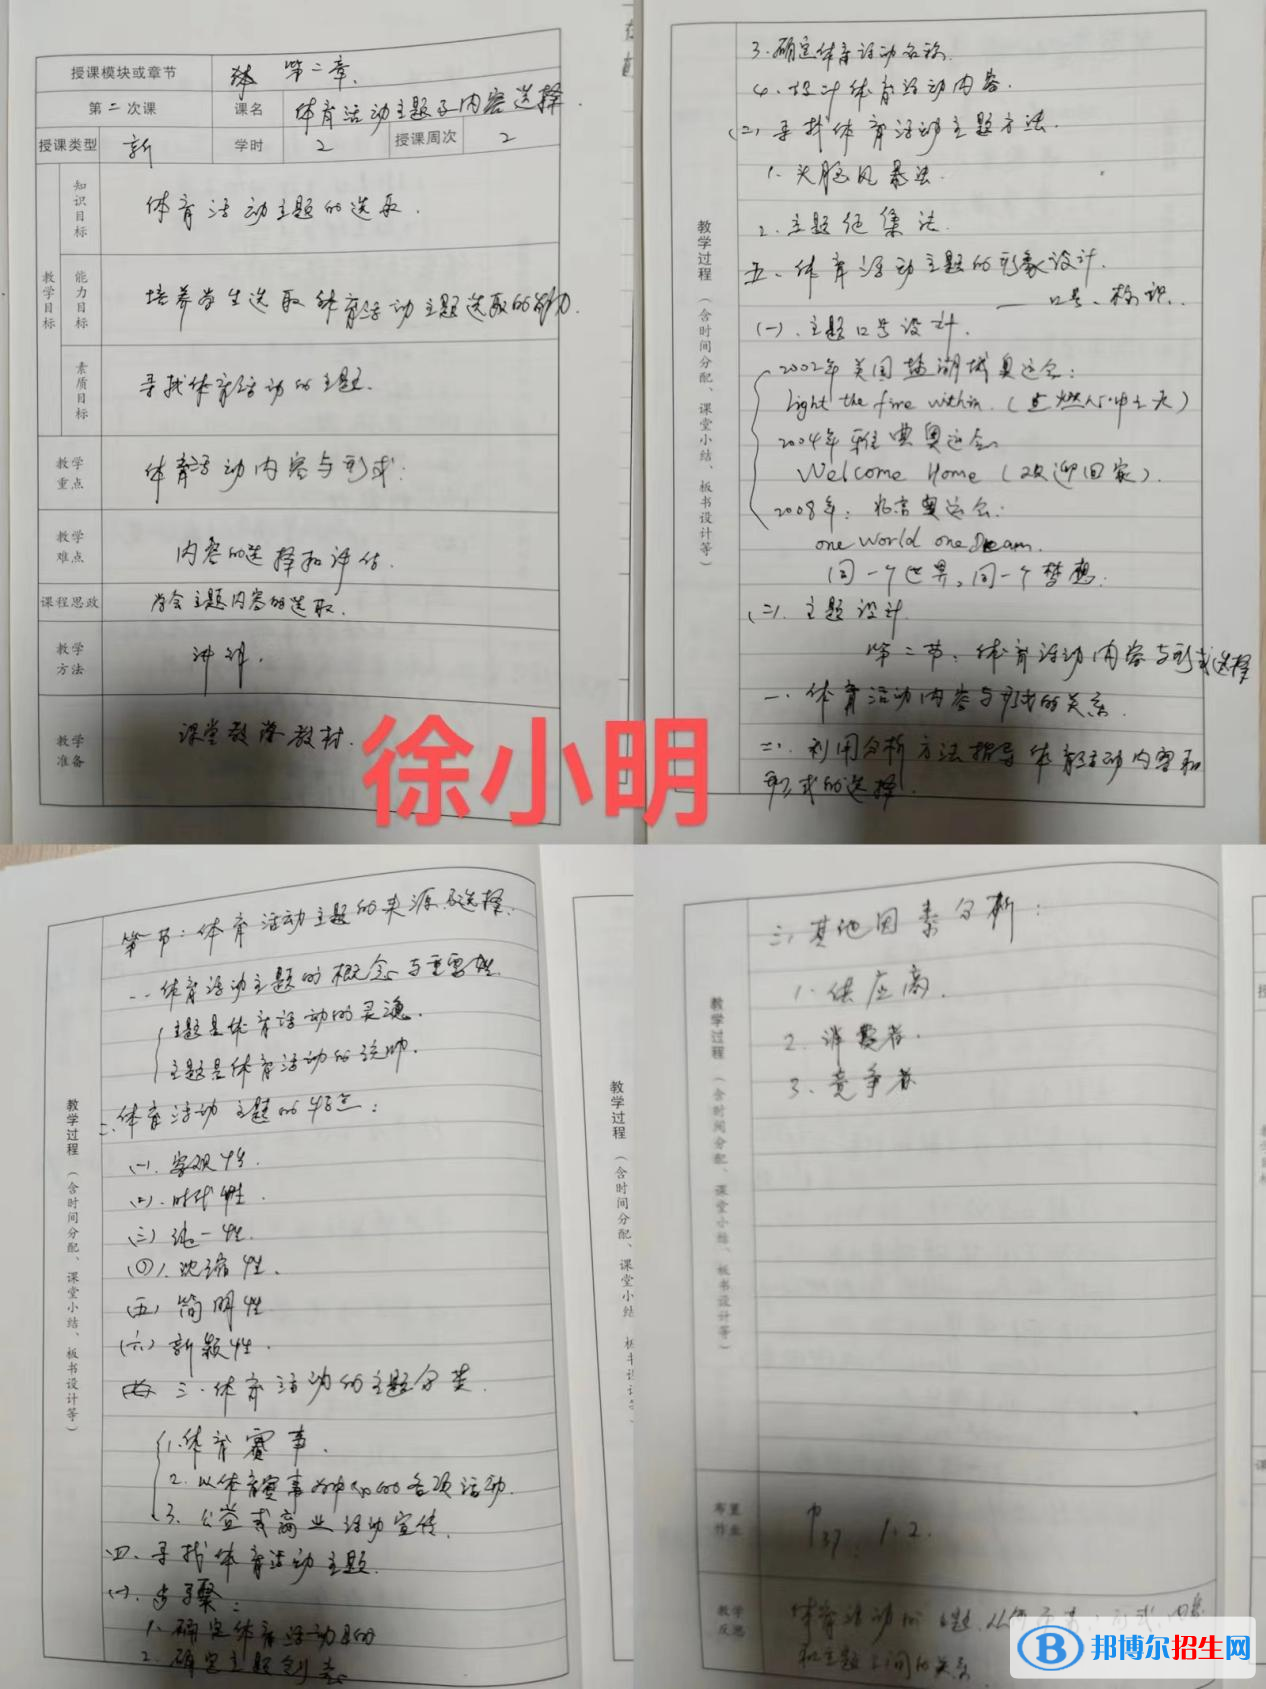 授课模块或章节 第二章.
第二次课 课名 体育活动主题及内容选择.
授课类型 新 学时 2 授课周次 2
教学目标
知识目标 体育活动主题的选取.
能力目标 培养学生选取体育活动主题选取的能力.
素质目标 寻找体育活动的主题.
教学重点 体育活动内容与形式.
教学难点 内容的选择和评估.
课程思政 学会主题内容的选取.
教学方法 讲训.
教学准备 课堂教学教材.
徐小明
教学过程（含时间分配、课堂小结、板书设计等）
3.确定体育活动名称.
4.设计体育活动内容.
(二)寻找体育活动主题方法.
1.头脑风暴法.
2.主题组集法.
五、体育活动主题的形象设计.
——口号、标识.
(一).主题口号设计.
2002年美国盐湖城奥运会:
light the fire within.(点燃心中之火)
2004年雅典奥运会
Welcome Home (欢迎回家).
2008年:北京奥运会:
one world one Dream.
同一个世界,同一个梦想.
(二).主题设计
第二节:体育活动内容与形式选择
一.体育活动内容与形式的关系.
二.利用分析方法指导体育活动内容和
形式的选择.
教学过程（含时间分配、课堂小结、板书设计等）
第一节:体育活动主题的来源与选择.
一.体育活动主题的概念与重要性
主题是体育活动的灵魂.
主题是体育活动的统帅.
二.体育活动主题的特点:
(一).客观性.
(二).时代性.
(三)统一性.
(四).浓缩性.
(五)简明性
(六)新颖性.
三.体育活动的主题分类.
1.体育赛事.
2.以体育赛事为中心的各项活动.
3.公益或商业活动宣传.
四.寻找体育活动主题.
(一).步骤:
1.确定体育活动目的
2.确定主题创意
教学过程（含时间分配、课堂小结、板书设计等）
教学过程（含时间分配、课堂小结、板书设计等）
三、其他因素分析:
1.供应商.
2.消费者.
3.竞争者
布置作业 P37. 1.2.
教学反思 体育活动的
和主题之间的关系
邦博尔招生网